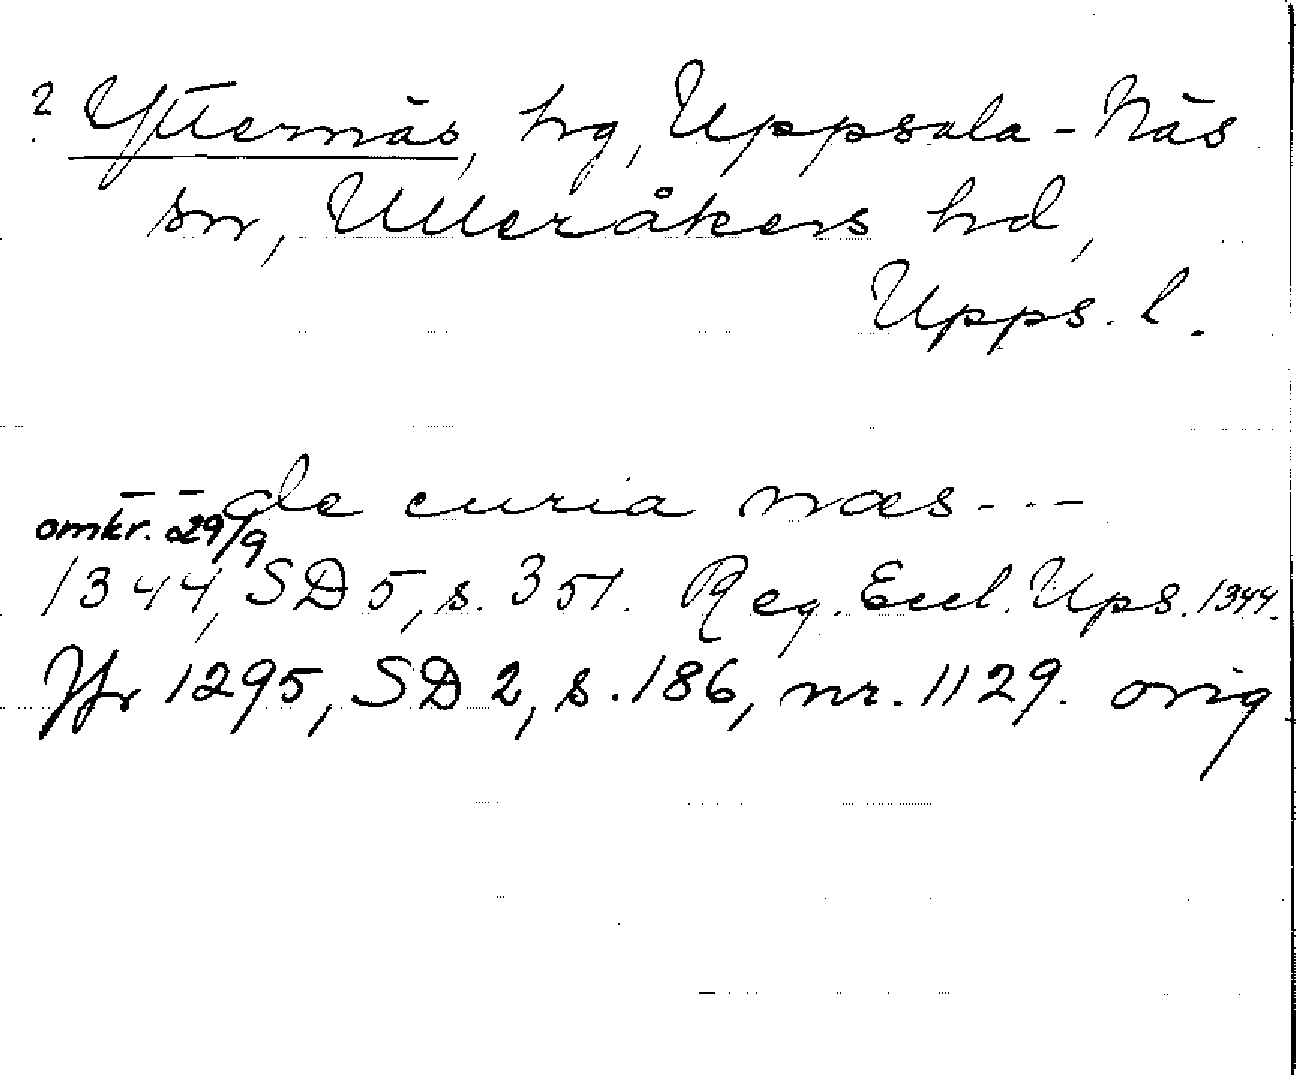 ? Ytternäs, hg, Uppsala-Näs
sn, Ulleråkers hd,
Upps. l.
- - de curia næs - - -
omkr. 29/9
1344, SD 5, s. 351. Reg. Eccl. Ups. 1344.
Jfr 1295, SD 2, s. 186, nr. 1129. orig